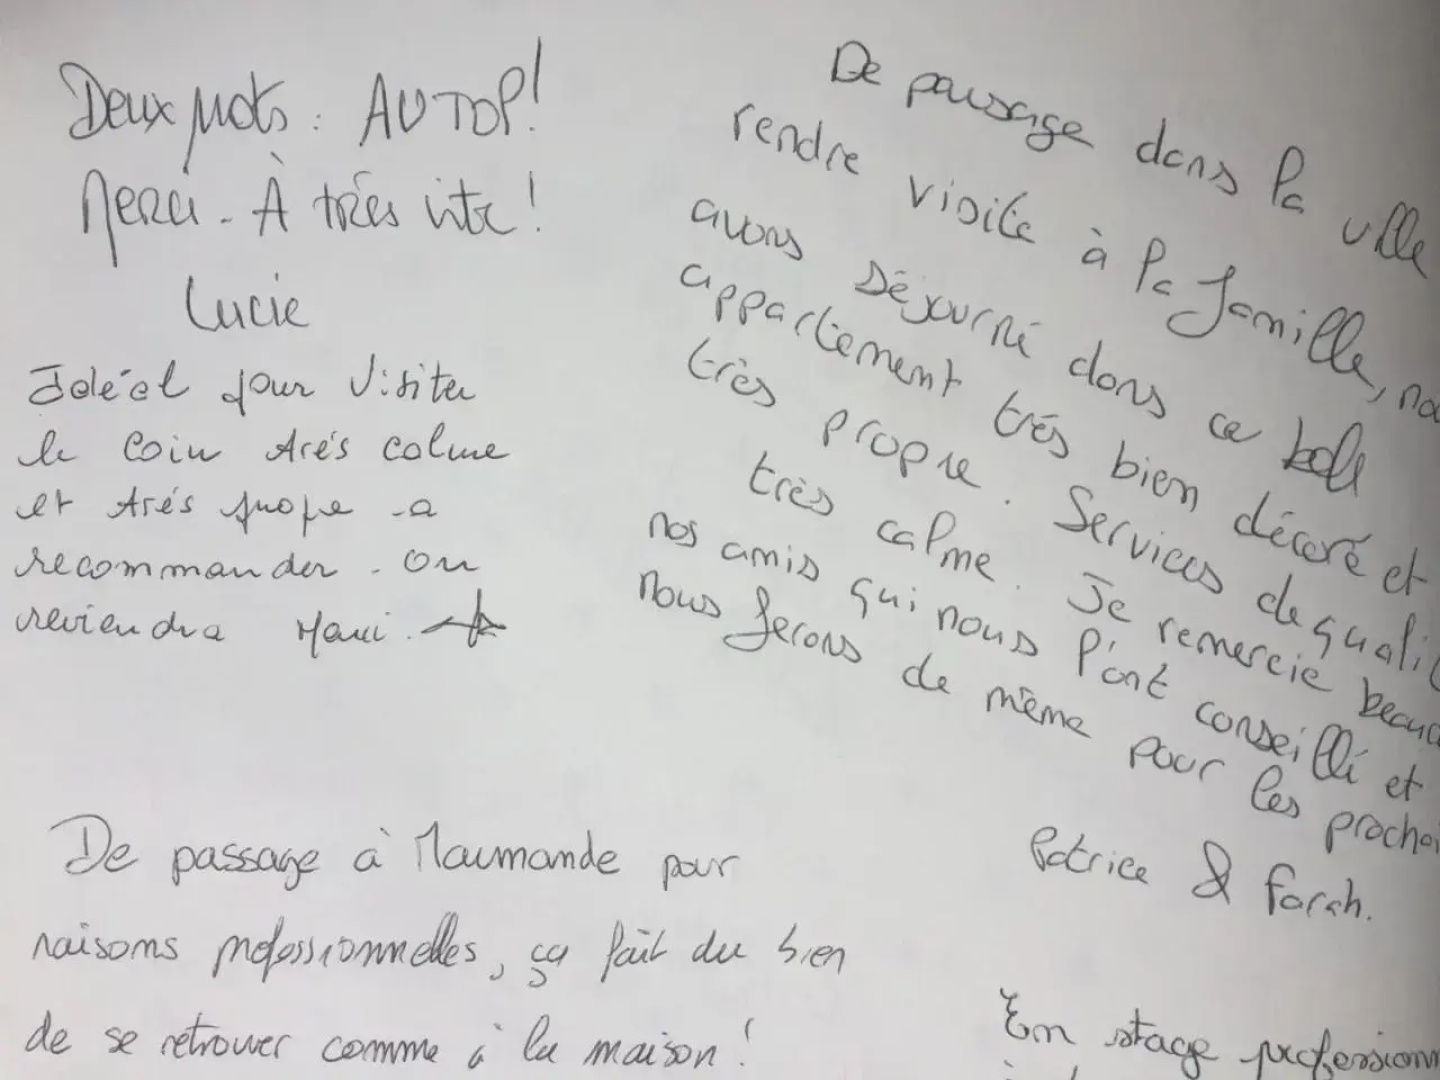 Deux mots : AU TOP !
Merci - À très vite !
Lucie
Idéal pour visiter
le coin très calme
et très propre - a
recommander - on
reviendra Merci.
De passage à Marmande pour
raisons professionnelles, ça fait du bien
de se retrouver comme à la maison !
De passage dans la ville
rendre visite à la famille,
avons séjourné dans ce bel
appartement très bien décoré et
très propre. Services de
très calme. Je remercie
nos amis qui nous l'ont conseillé et
nous ferons de même pour les
Patrice & Farah.
En stage